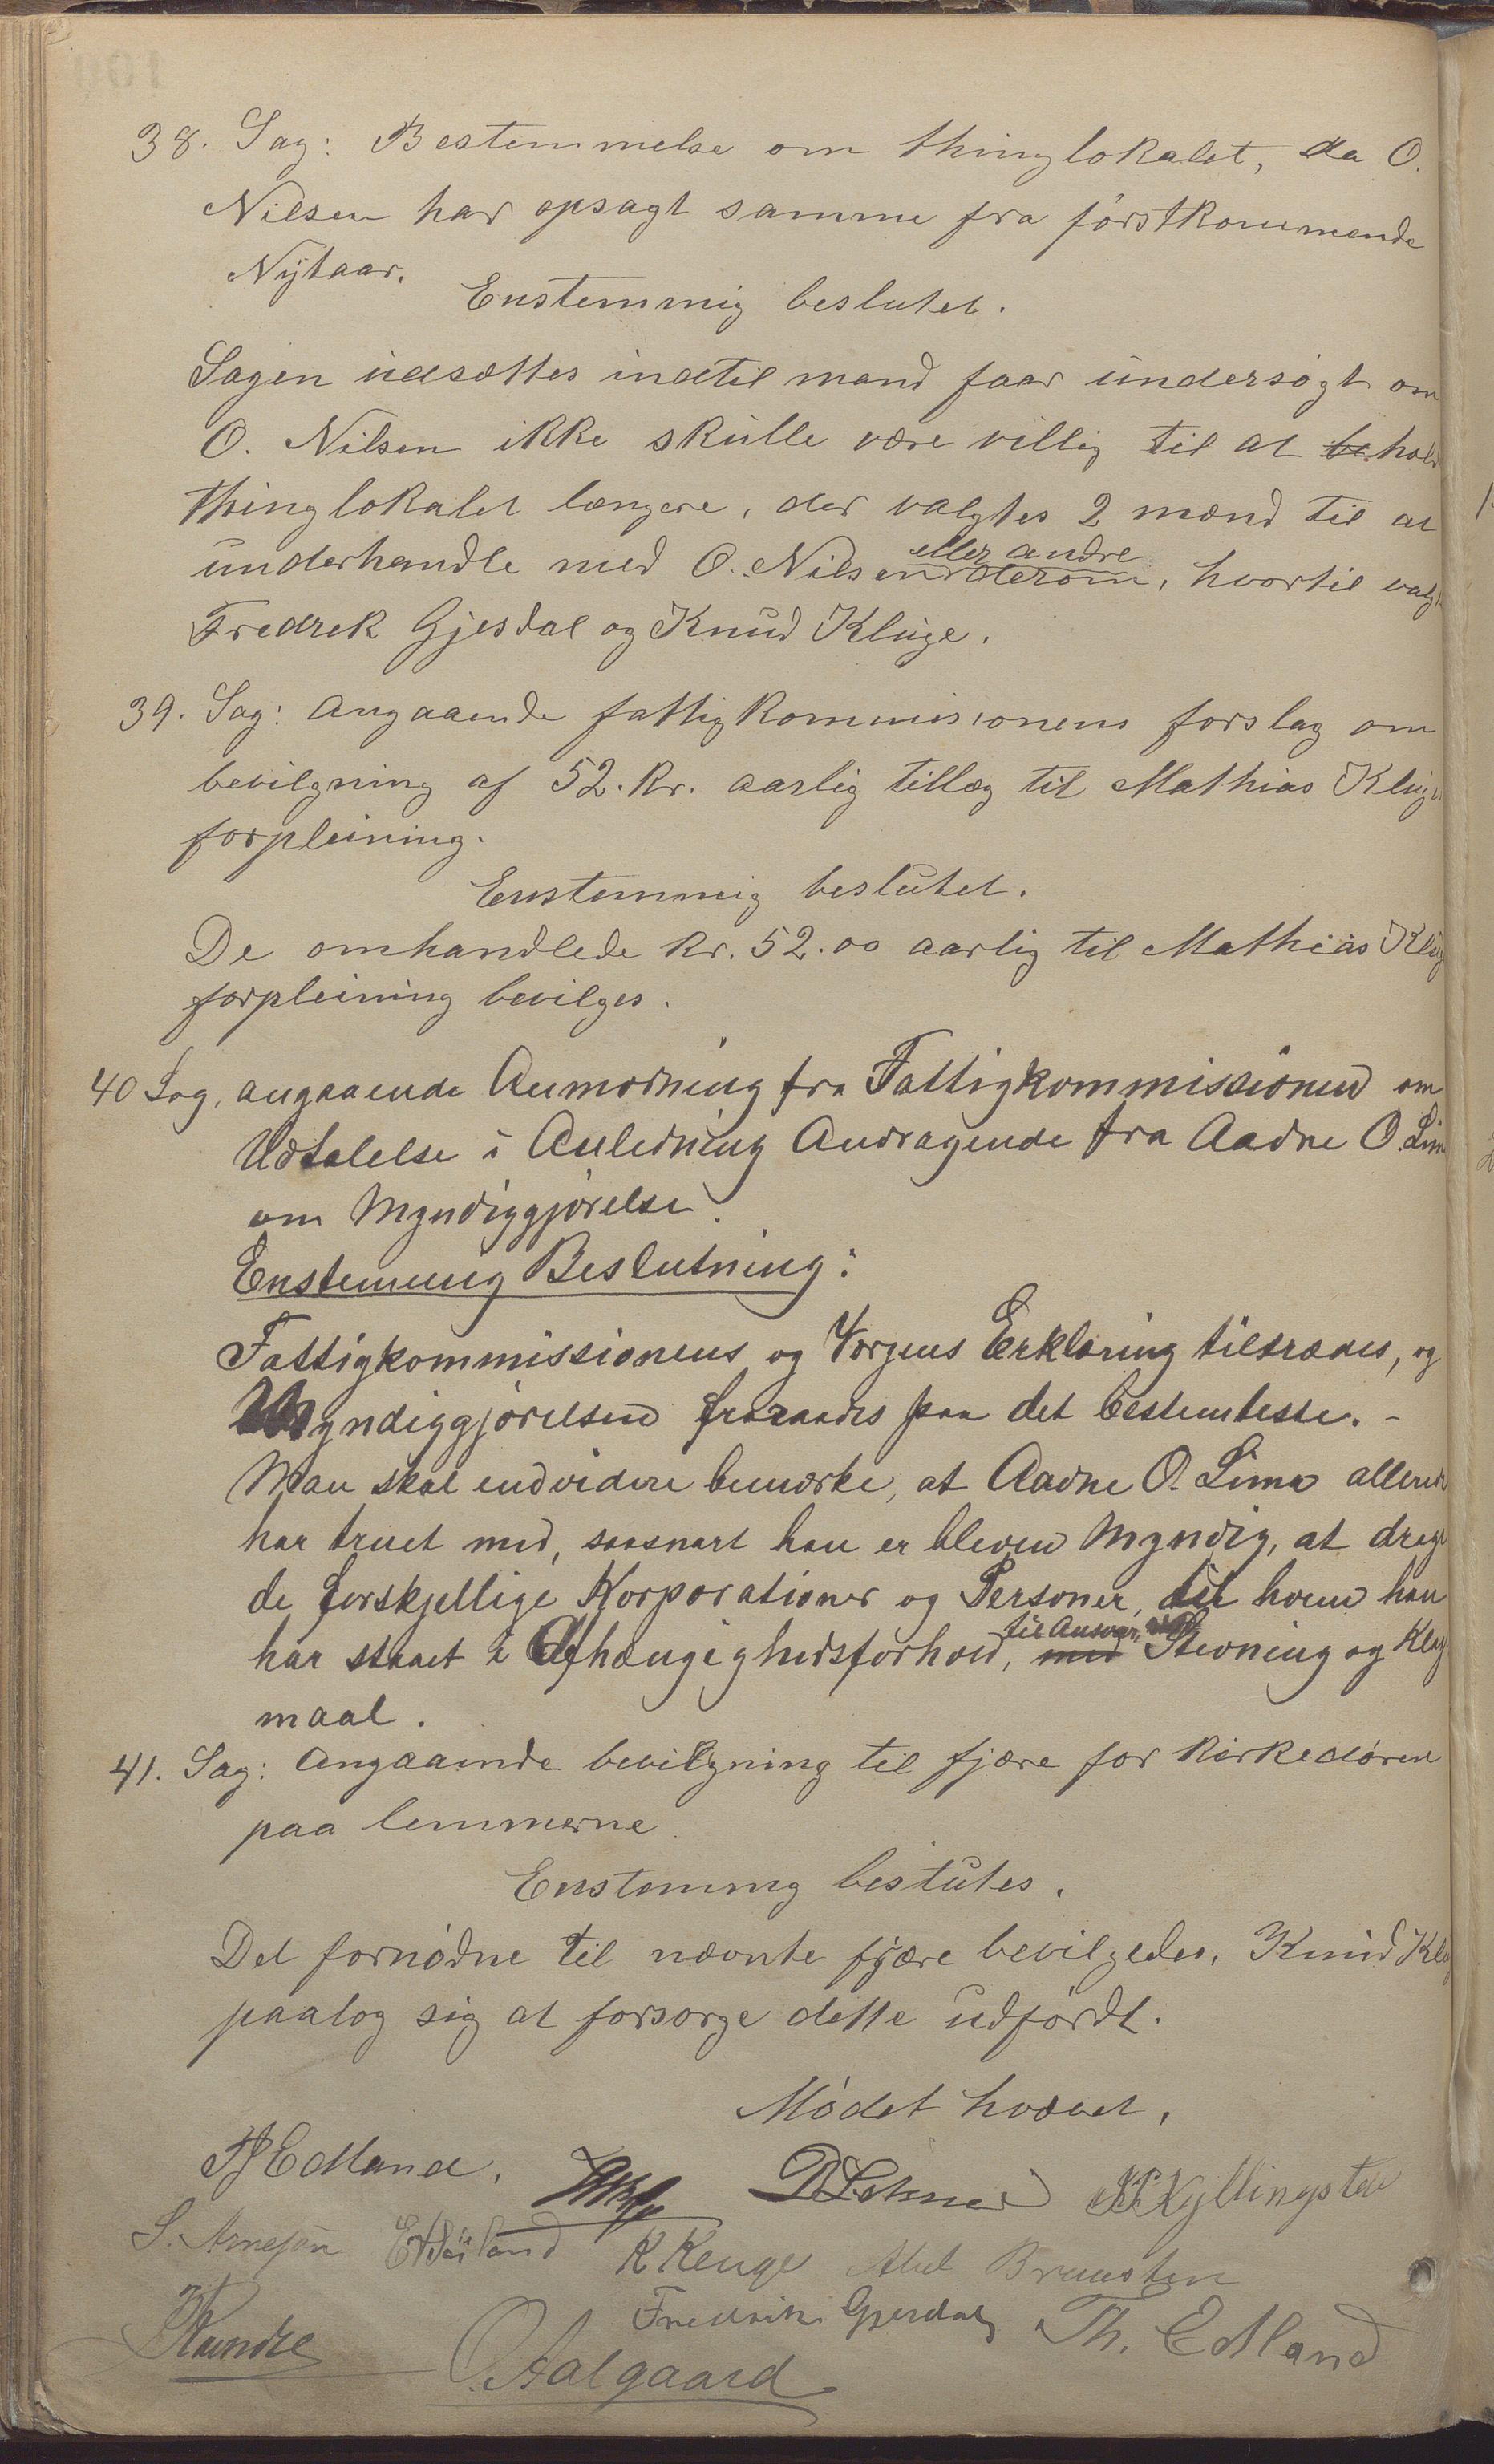 38. Sag: Bestemmelse om thinglokalet, da O.
Nilsen har opsagt samme fra førstkommende
Nytaar.
Enstemmig beslutet.
Sagen udsættes indtil mand faar undersøgt om
O. Nilsen ikke skulle være villig til at be hold
thinglokalet længere, der valgtes 2 mænd til at
eller andre
underhandle med O. Nilsen derom, hvortil valg
Fredrek Gjesdal og Knud Kluge.
39. Sag: Angaaende fattigkommisionens forslag om
bevilgning af 52. Kr. aarlig tillæg til Mathias Kluge
forpleining.
Enstemmig beslutet.
De omhandlede Kr. 52.00 aarlig til Mathias Klug
forpleining bevilges.
40 Sag, angaaende Anmodning fra Fattigkommissionen om
Udtalelse i Anledning Andragende fra Aadne O. Lima
om Myndiggjørelse.
Enstemmig Beslutning:
Fattigkommissionens og Vergens Erklæring tiltrædes, og
Myndiggjørelsen fraraades paa det bestemteste. -
Man skal endvidere bemærke, at Aadne O. Lima allerede
har truet med, saasnart han er bleven Myndig, at drage
de forskjellige Korporationer og Personer, til hvem han
til Ansvar, ved
har staaet i Afhængighedsforhold, med Stevning og Klag
maal.
41. Sag: Angaaende bevilgning til fjære for kirkedøren
paa lemmerne
Enstemmig beslutes.
Det fornødne til nævnte fjære bevilgedes. Knud Klu
paatog sig at forsørge dette udførdt.
Mødet hævet.
Edland.
Kyllingstad
S. Arnesen
K Kluge Abel Braasten
Fredrik Gjesdal Th. Edland
O. Aalgaard